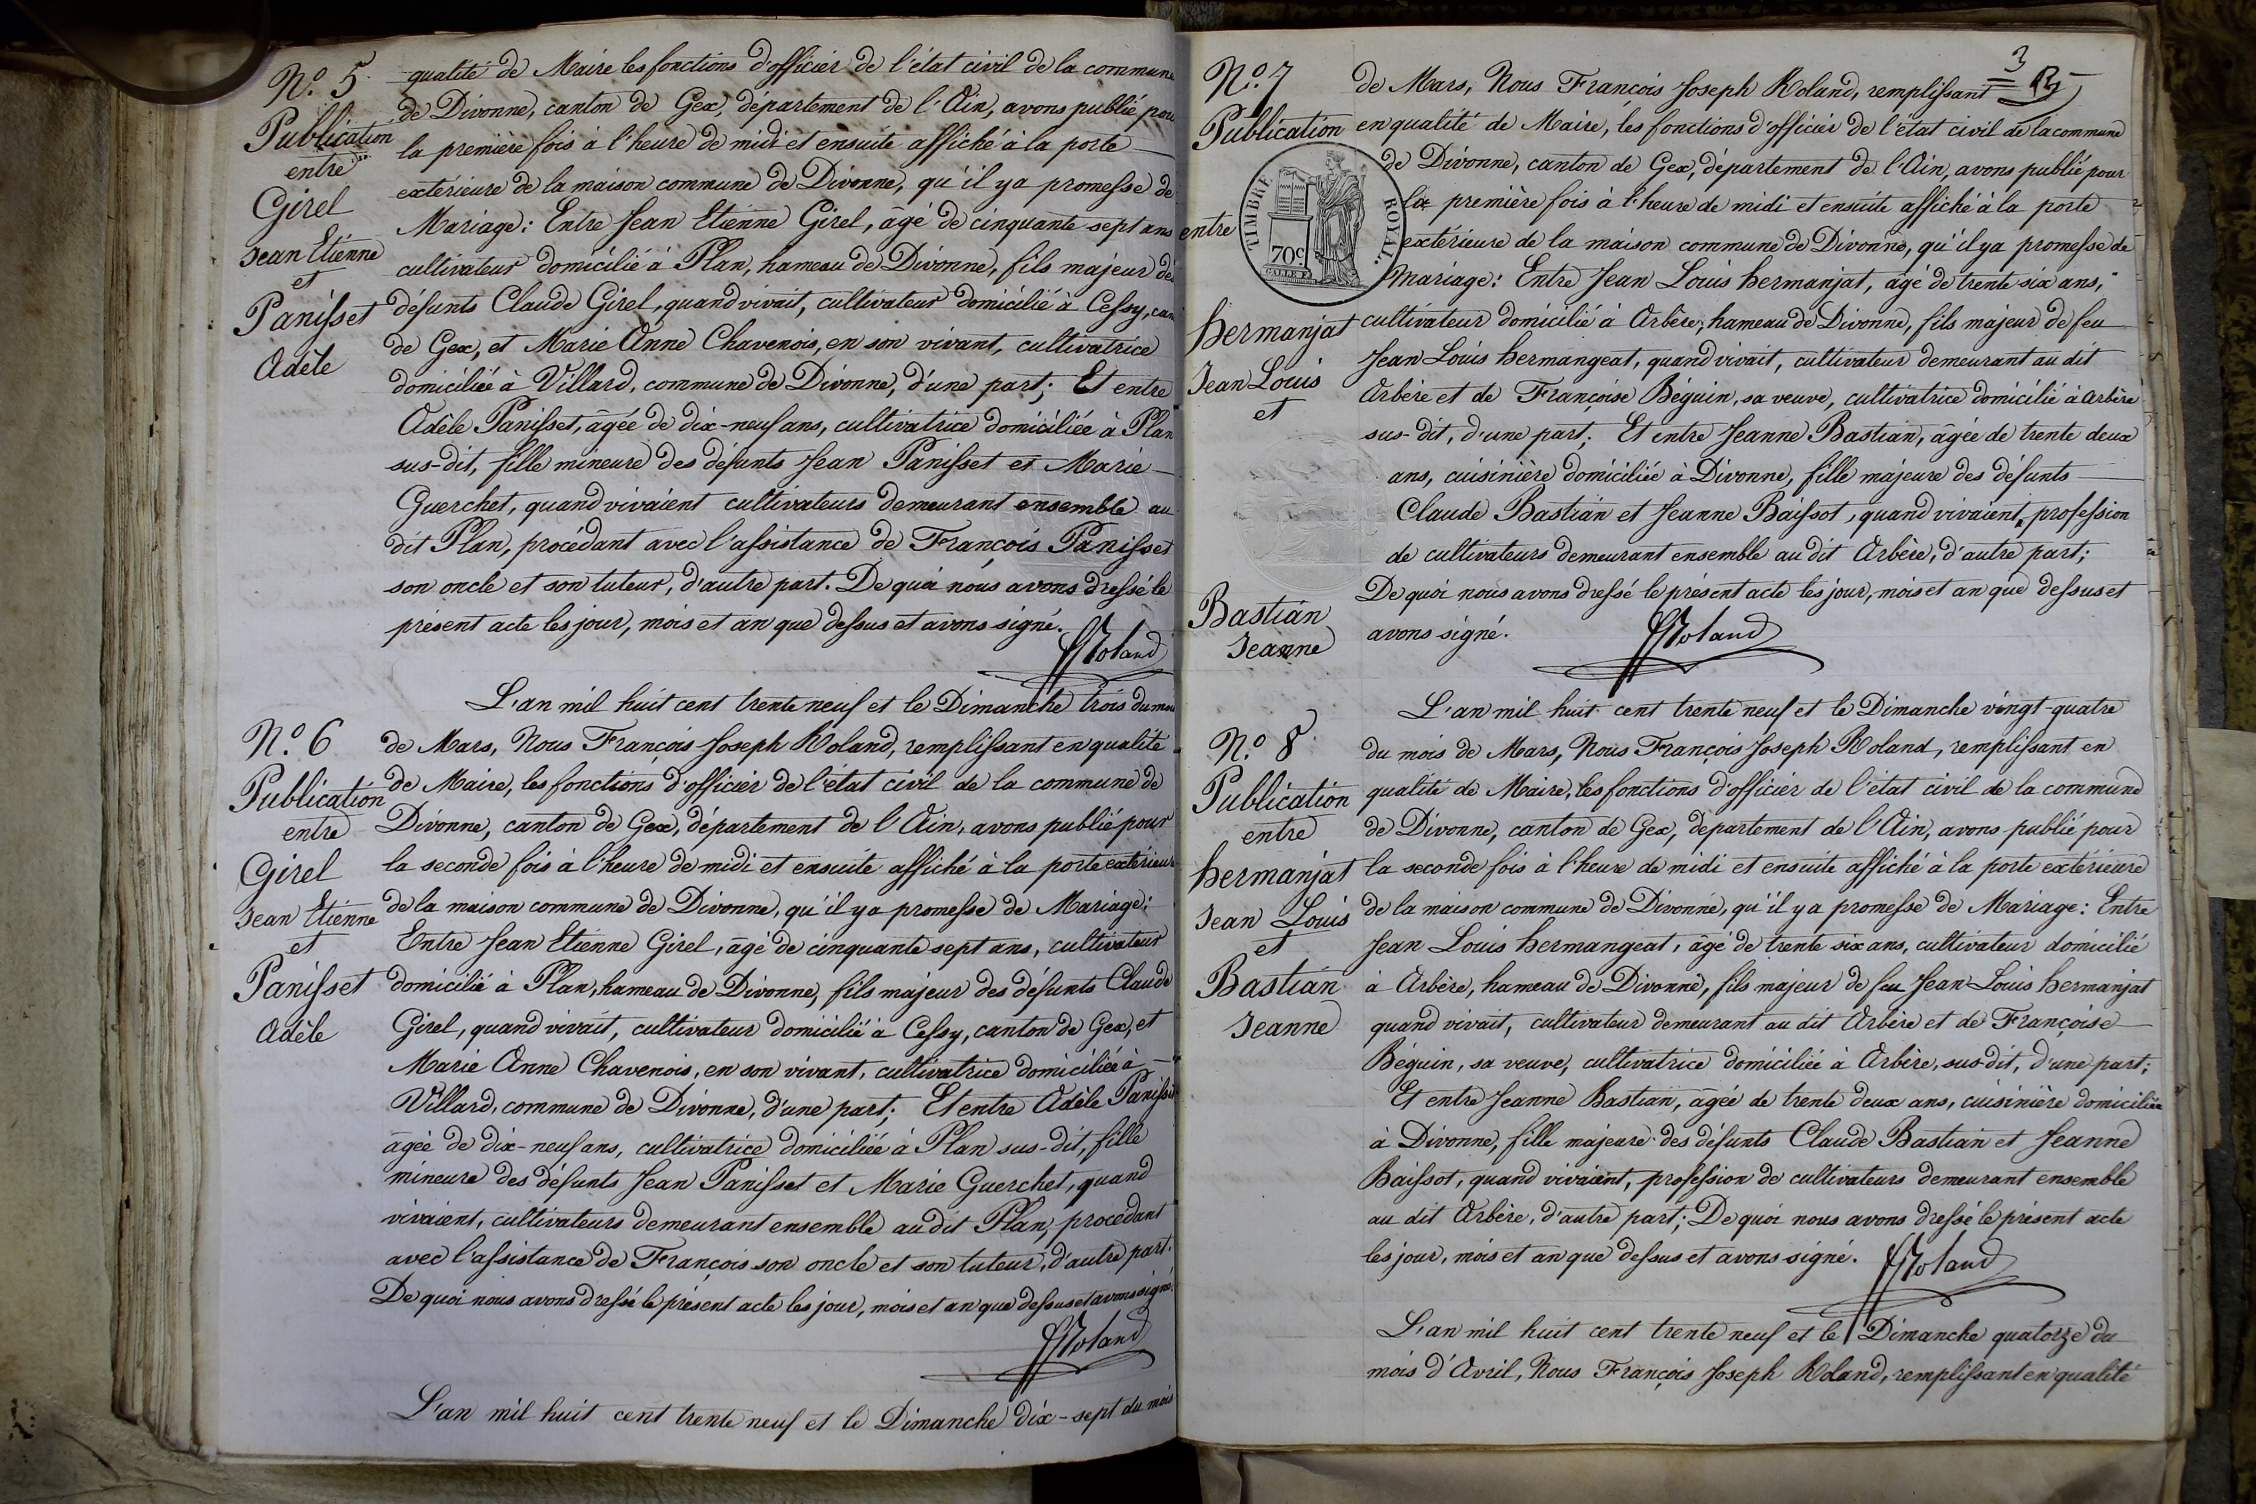 N.o 5
Publication
entre
Girel
Jean Etienne
et
Panisset
Adèle
qualité de Maire les fonctions d'officier de l'état civil de la commune
de Divonne, canton de Gex, département de l'Ain, avons publié pour
la première fois à l'heure de midi et ensuite affiché à la porte
extérieure de la maison commune de Divonne, qu'il y a promesse de
Mariage: Entre Jean Etienne Girel, âgé de cinquante sept ans
cultivateur domicilié à Plan, hameau de Divonne, fils majeur des
défunts Claude Girel, quand vivait, cultivateur domicilié à Cessy, can
de Gex, et Marie Anne Chavenois, en son vivant, cultivatrice
domiciliée à Villard, commune de Divonne, d'une part; Et entre
Adèle Panisset, âgée de dix-neuf ans, cultivatrice domiciliée à Plan
sus-dit, fille mineure des défunts Jean Panisset et Marie
Guerchet, quand vivaient cultivateurs demeurant ensemble au
dit Plan, procédant avec l'assistance de François Panisset
son oncle et son tuteur, d'autre part. De quoi nous avons dressé le
présent acte les jour, mois et an que dessus et avons signé.
Roland
N.o 6
Publication
entre
Girel
Jean Etienne
et
Panisset
Adèle
L'an mil huit cent trente neuf et le Dimanche trois du mois
de Mars, Nous François Joseph Roland, remplissant en qualité
de Maire, les fonctions d'officier de l'état civil de la commune de
Divonne, canton de Gex, département de l'Ain, avons publié pour
la seconde fois à l'heure de midi et ensuite affiché à la porte extérieure
de la maison commune de Divonne, qu'il y a promesse de Mariage:
Entre Jean Etienne Girel, âgé de cinquante sept ans, cultivateur
domicilié à Plan, hameau de Divonne, fils majeur des défunts Claude
Girel, quand vivait, cultivateur domicilié à Cessy, canton de Gex, et
Marie Anne Chavenois, en son vivant, cultivatrice domiciliée à
Villard, commune de Divonne, d'une part; Et entre Adèle Panisset
âgée de dix-neuf ans, cultivatrice domiciliée à Plan sus-dit, fille
mineure des défunts Jean Panisset et Marie Guerchet, quand
vivaient, cultivateurs demeurant ensemble au dit Plan, procédant
avec l'assistance de François son oncle et son tuteur, d'autre part.
De quoi nous avons dressé le présent acte les jour, mois et an que dessus et avons signé.
Roland
L'an mil huit cent trente neuf et le Dimanche dix-sept du mois
3
N.o 7
Publication
entre
Hermanjat
Jean Louis
et
Bastian
Jeanne
TIMBRE ROYAL.
70c
de Mars, Nous François Joseph Roland, remplissant
en qualité de Maire, les fonctions d'officier de l'état civil de la commune
de Divonne, canton de Gex, département de l'Ain, avons publié pour
la première fois à l'heure de midi et ensuite affiché à la porte
extérieure de la maison commune de Divonne, qu'il y a promesse de
Mariage: Entre Jean Louis hermanjat, âgé de trente six ans,
cultivateur domicilié à Arbère, hameau de Divonne, fils majeur de feu
Jean Louis hermangeat, quand vivait, cultivateur demeurant au dit
Arbère et de Françoise Béguin, sa veuve, cultivatrice domicilié à Arbère
sus-dit, d'une part; Et entre Jeanne Bastian, âgée de trente deux
ans, cuisinière domiciliée à Divonne, fille majeure des défunts
Claude Bastian et Jeanne Baissot, quand vivaient, profession
de cultivateurs demeurant ensemble au dit Arbère, d'autre part;
De quoi nous avons dressé le présent acte les jour, mois et an que dessus et
avons signé.
Roland
N.o 8
Publication
entre
hermanjat
Jean Louis
et
Bastian
Jeanne
L'an mil huit cent trente neuf et le Dimanche vingt-quatre
du mois de Mars, Nous François Joseph Roland, remplissant en
qualité de Maire, les fonctions d'officier de l'état civil de la commune
de Divonne, canton de Gex, département de l'Ain, avons publié pour
la seconde fois à l'heure de midi et ensuite affiché à la porte extérieure
de la maison commune de Divonne, qu'il y a promesse de Mariage: Entre
Jean Louis hermangeat, âgé de trente six ans, cultivateur domicilié
à Arbère, hameau de Divonne, fils majeur de feu Jean Louis hermanjat
quand vivait, cultivateur demeurant au dit Arbère et de Françoise
Béguin, sa veuve, cultivatrice domiciliée à Arbère, sus-dit, d'une part;
Et entre Jeanne Bastian, âgée de trente deux ans, cuisinière domiciliée
à Divonne, fille majeure des défunts Claude Bastian et Jeanne
Baissot, quand vivaient, profession de cultivateurs demeurant ensemble
au dit Arbère, d'autre part; De quoi nous avons dressé le présent acte
les jour, mois et an que dessus et avons signé.
Roland
L'an mil huit cent trente neuf et le Dimanche quatorze du
mois d'Avril, Nous François Joseph Roland, remplissant en qualité